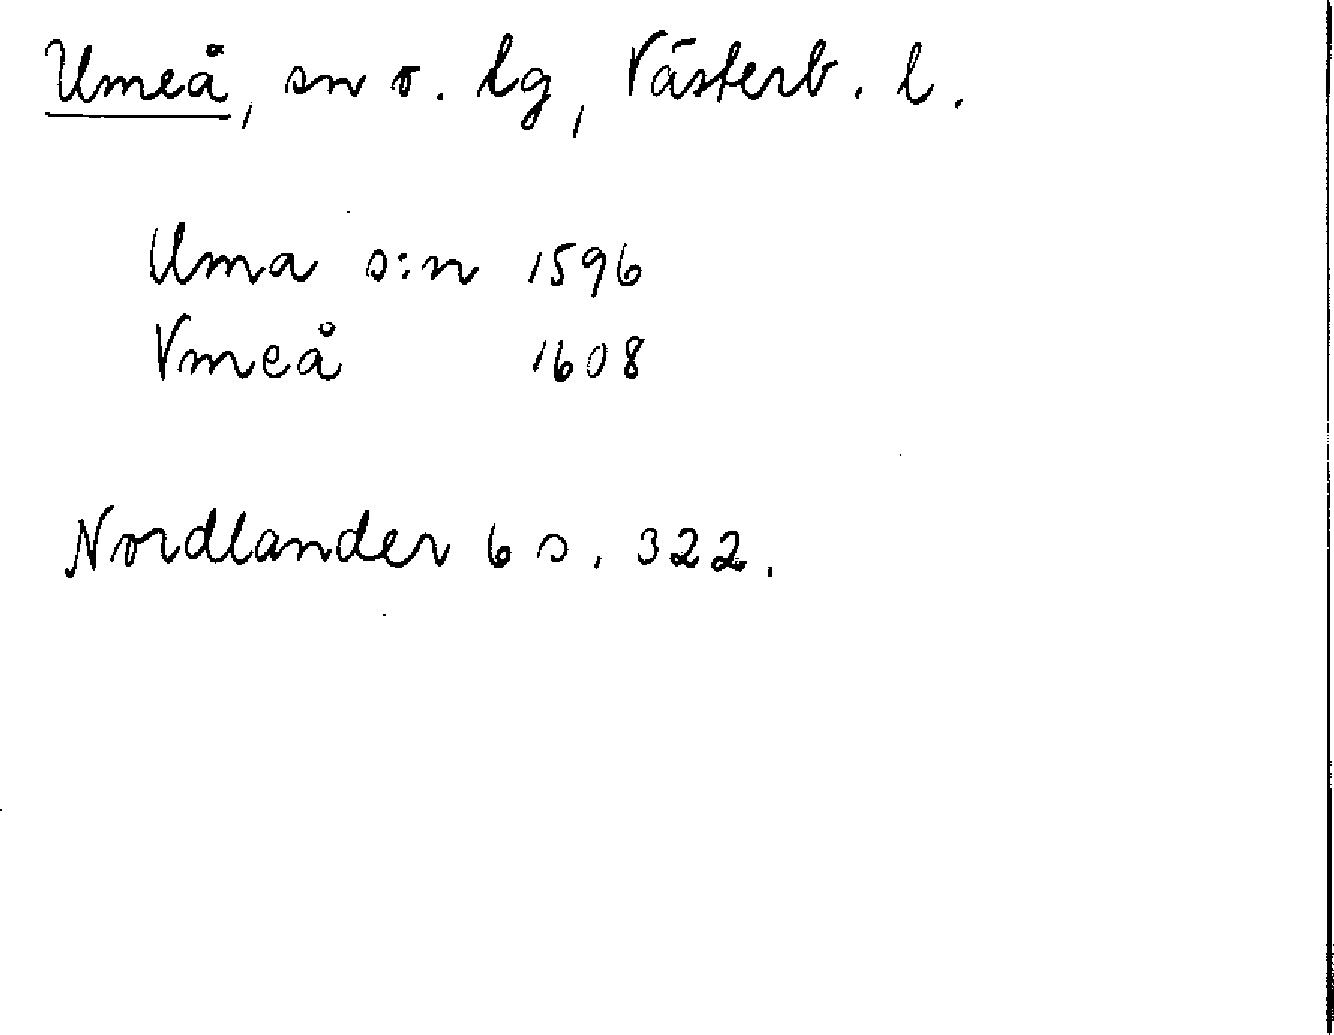 Umeå, sn o. lg, Västerb. l.
Uma s:n 1596
Vmeå 1608
Nordlander 6 s. 322.